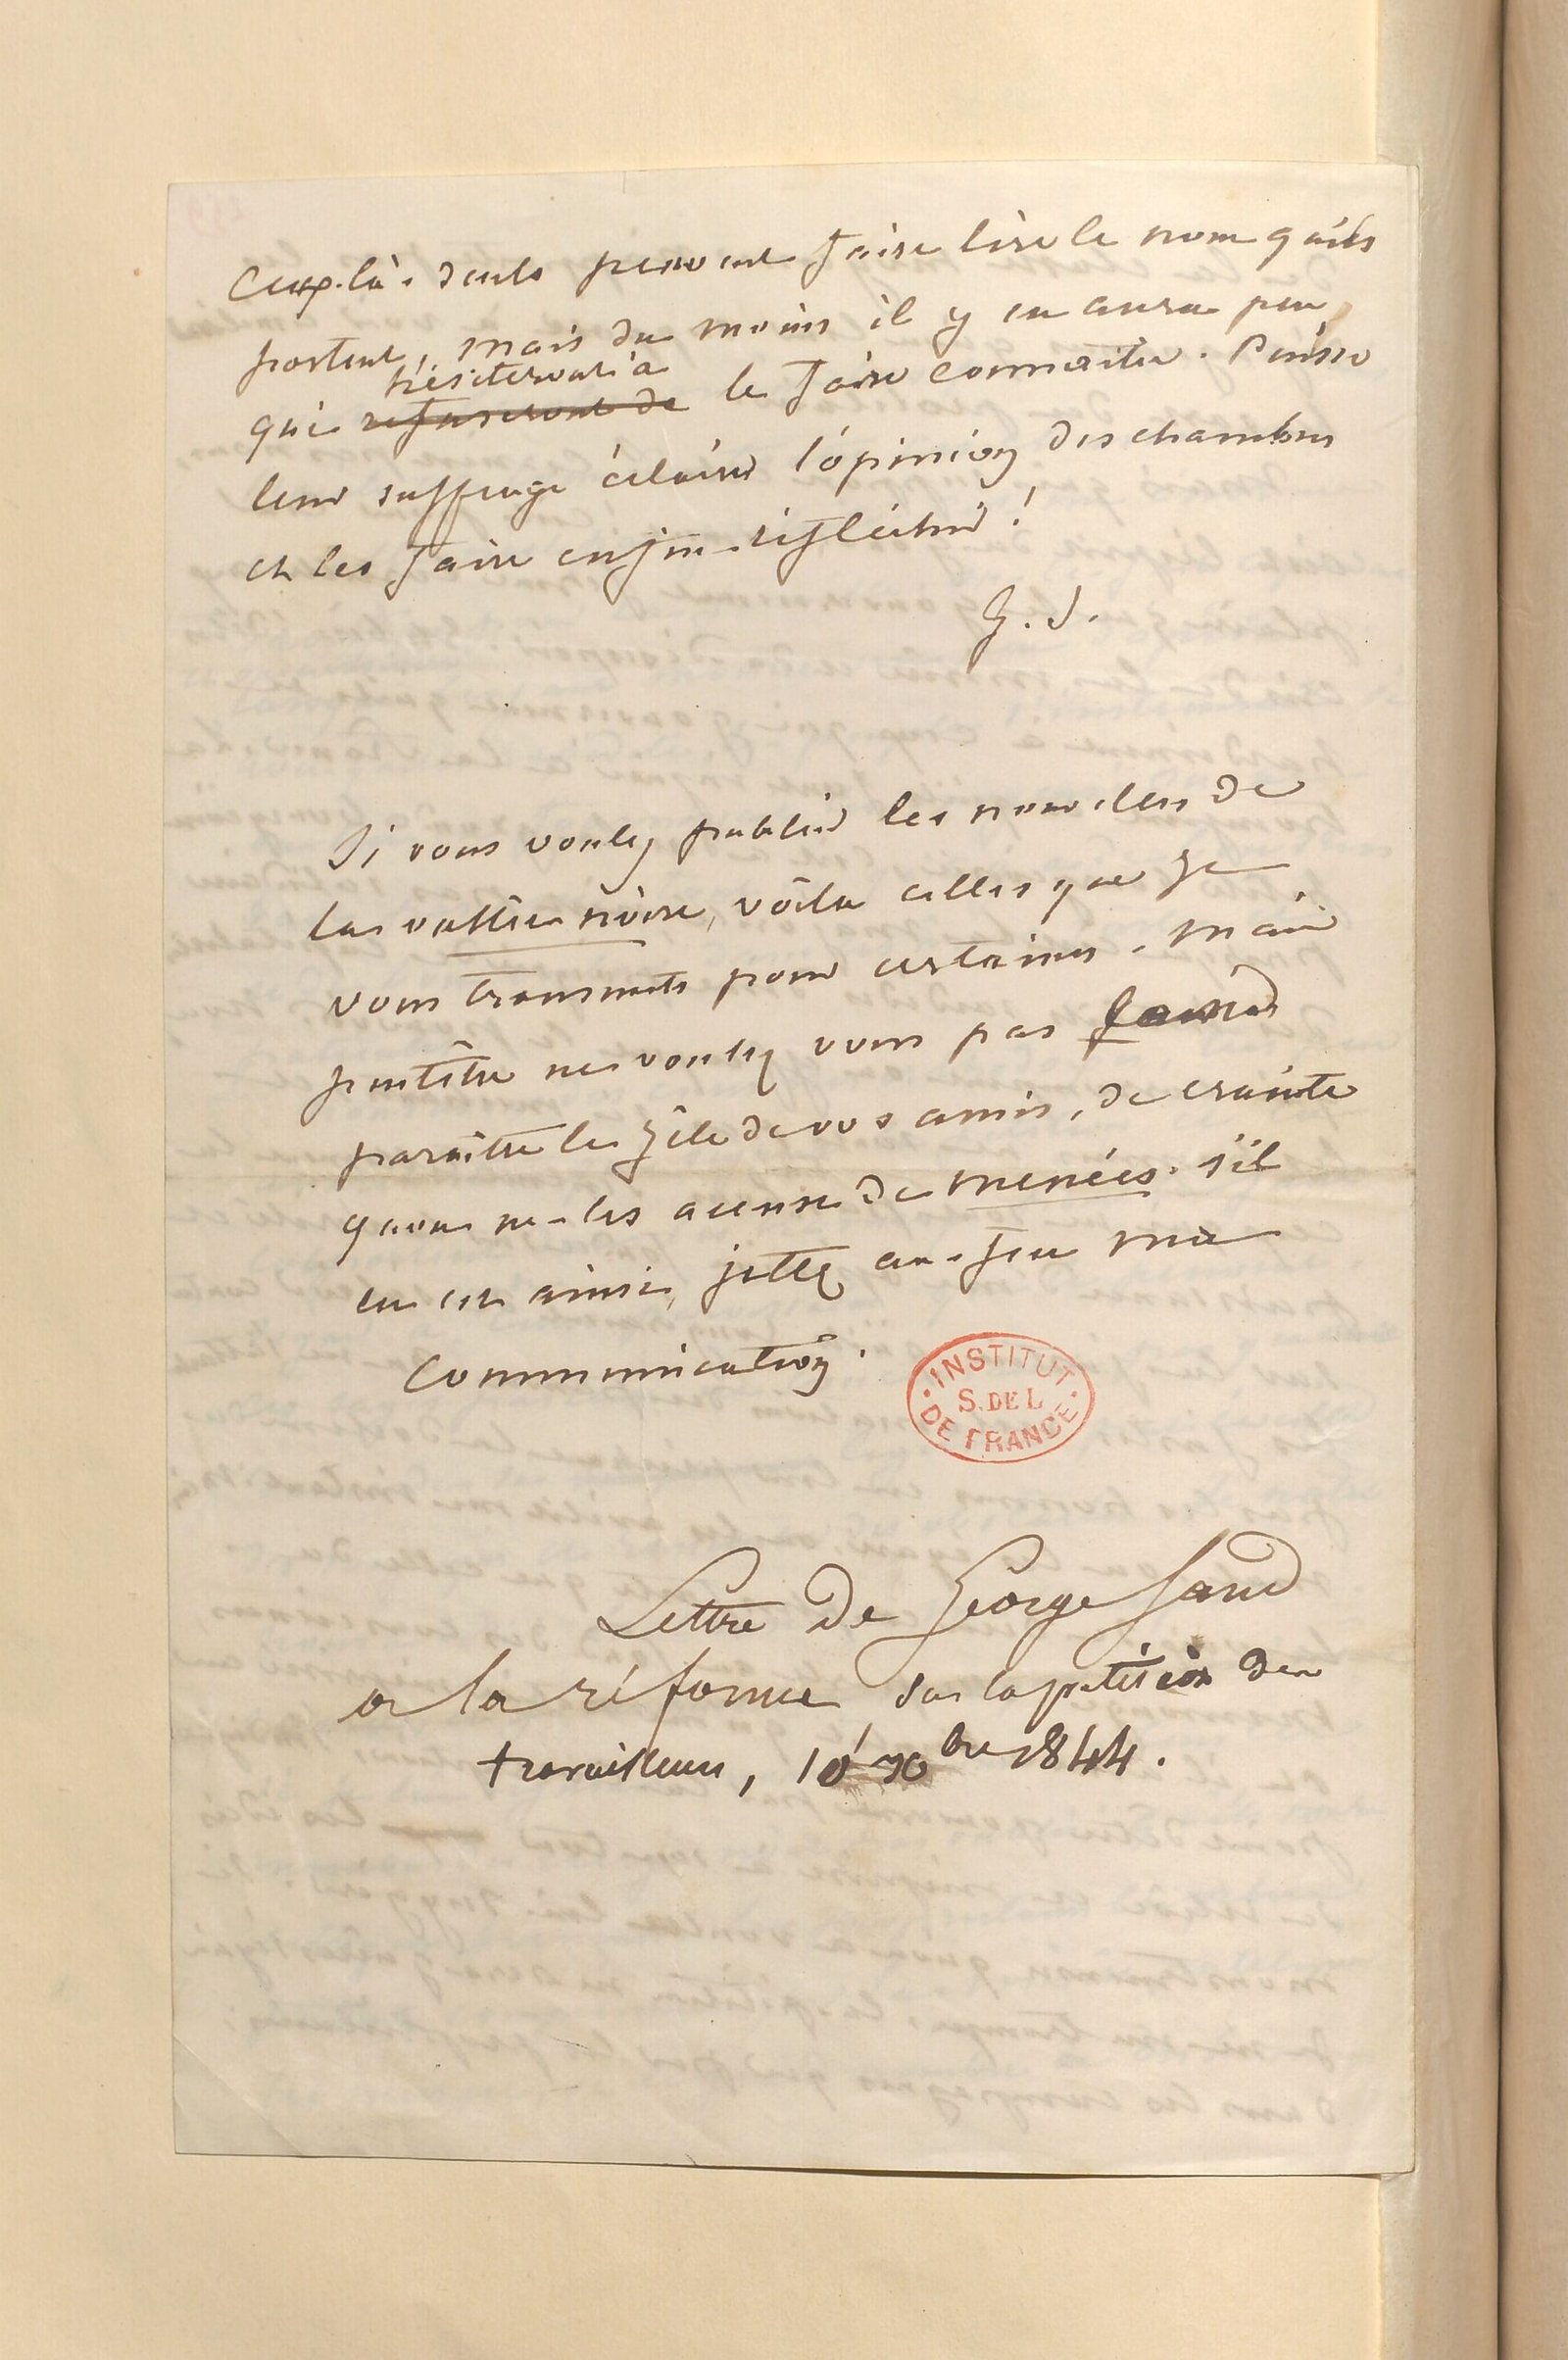 Ceux-là seuls peuvent faire lire le nom qu'ils
portent, mais du moins il y en aura peu,
hésiteront à
qui refuseront de le faire connaître. Puisse
leur suffrage éclairer l'opinion des chambres
et les faire enfin réfléchir!
G. S.
Si vous voulez publier les nouvelles de
la vallée noire, voila celles que je
vous transmets pour certaines. Mais
peutêtre ne voulez vous pas
paraitre le zèle de vos amis, de crainte
qu'on ne les accuse de menées. S'il
en est ainsi, jettez au feu ma
communication.
INSTITUT
S. DE L
DE FRANCE
Lettre de George Sand
a la réforme sur la petition des
travailleurs, 10 bre 1844.